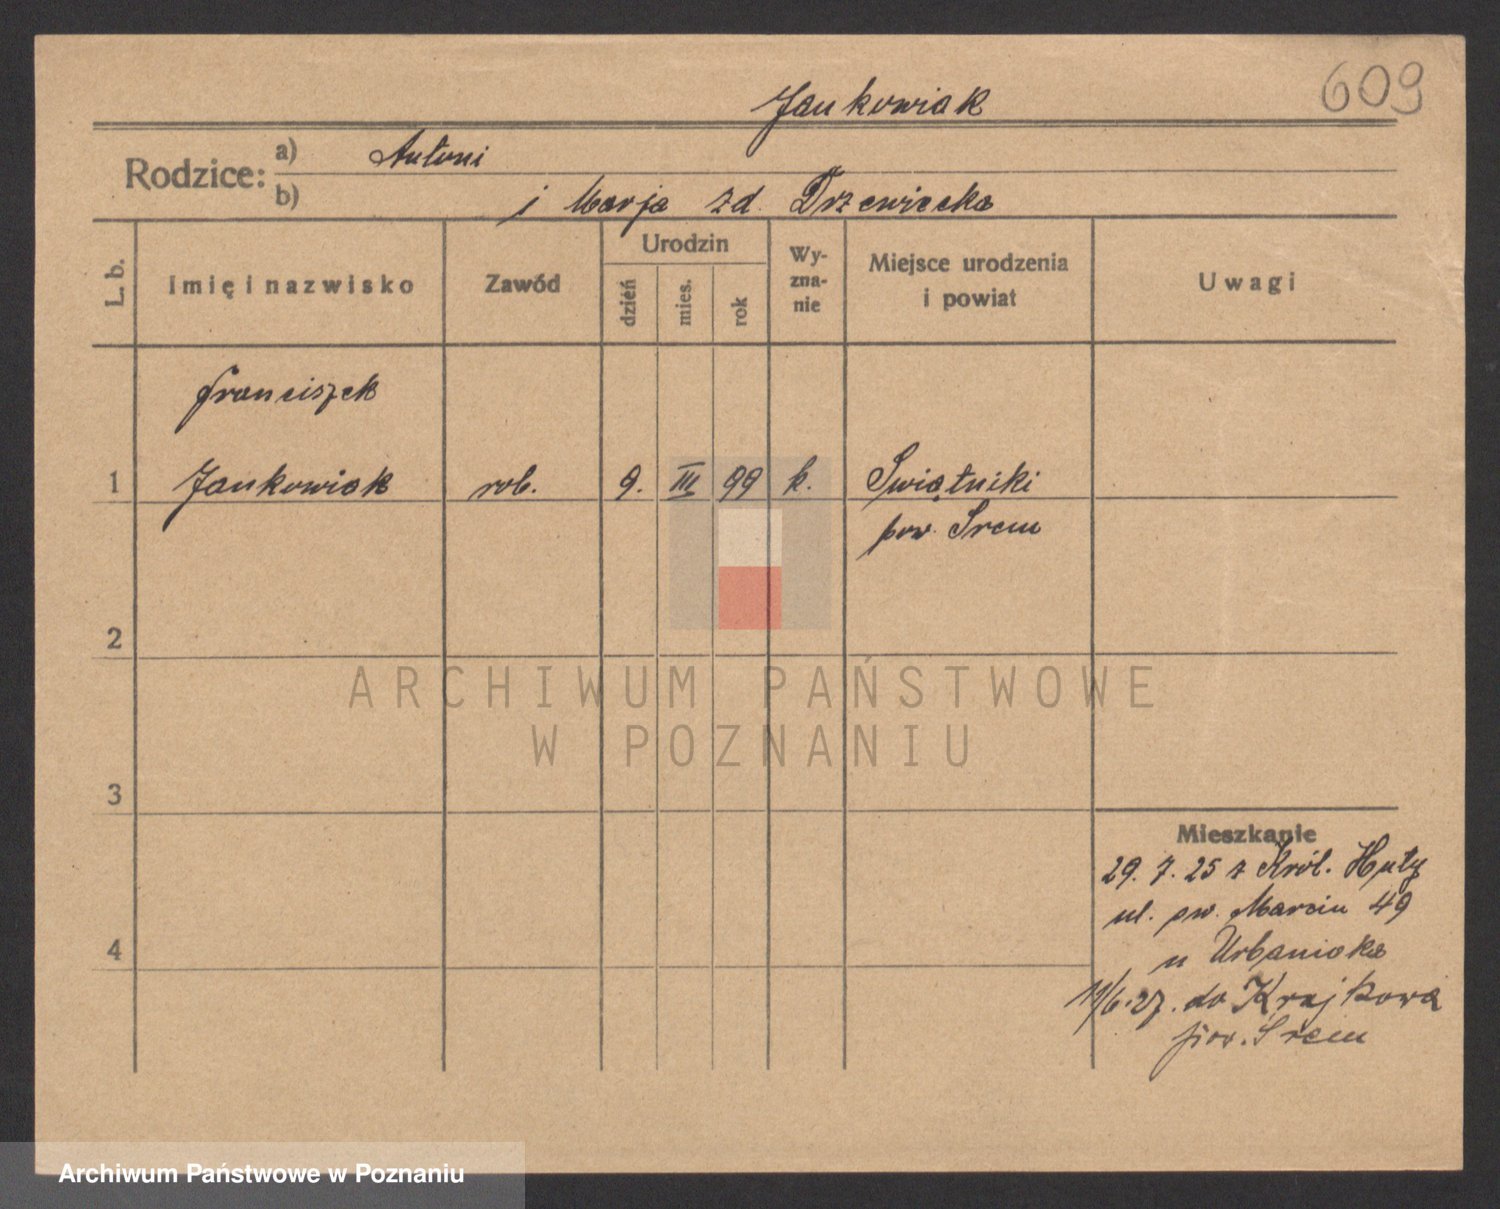 609
Jankowiak
Rodzice: a) Antoni
b) i Marja zd. Drzewiecka
L. b.
Imię i nazwisko
Zawód
Urodzin
dzień
mies.
rok
Wy-
zna-
nie
Miejsce urodzenia
i powiat
Uwagi
Franciszek
1 Jankowiak rob. 9. III 99 k. Świątniki
pow. Śrem
2
3
4
Mieszkanie
29. 7. 25 z Król. Huty
ul. św. Marcin 49
u Urbaniaka
11/6.27. do Krajkowa
pow. Śrem
ARCHIWUM PAŃSTWOWE
W POZNANIU
Archiwum Państwowe w Poznaniu